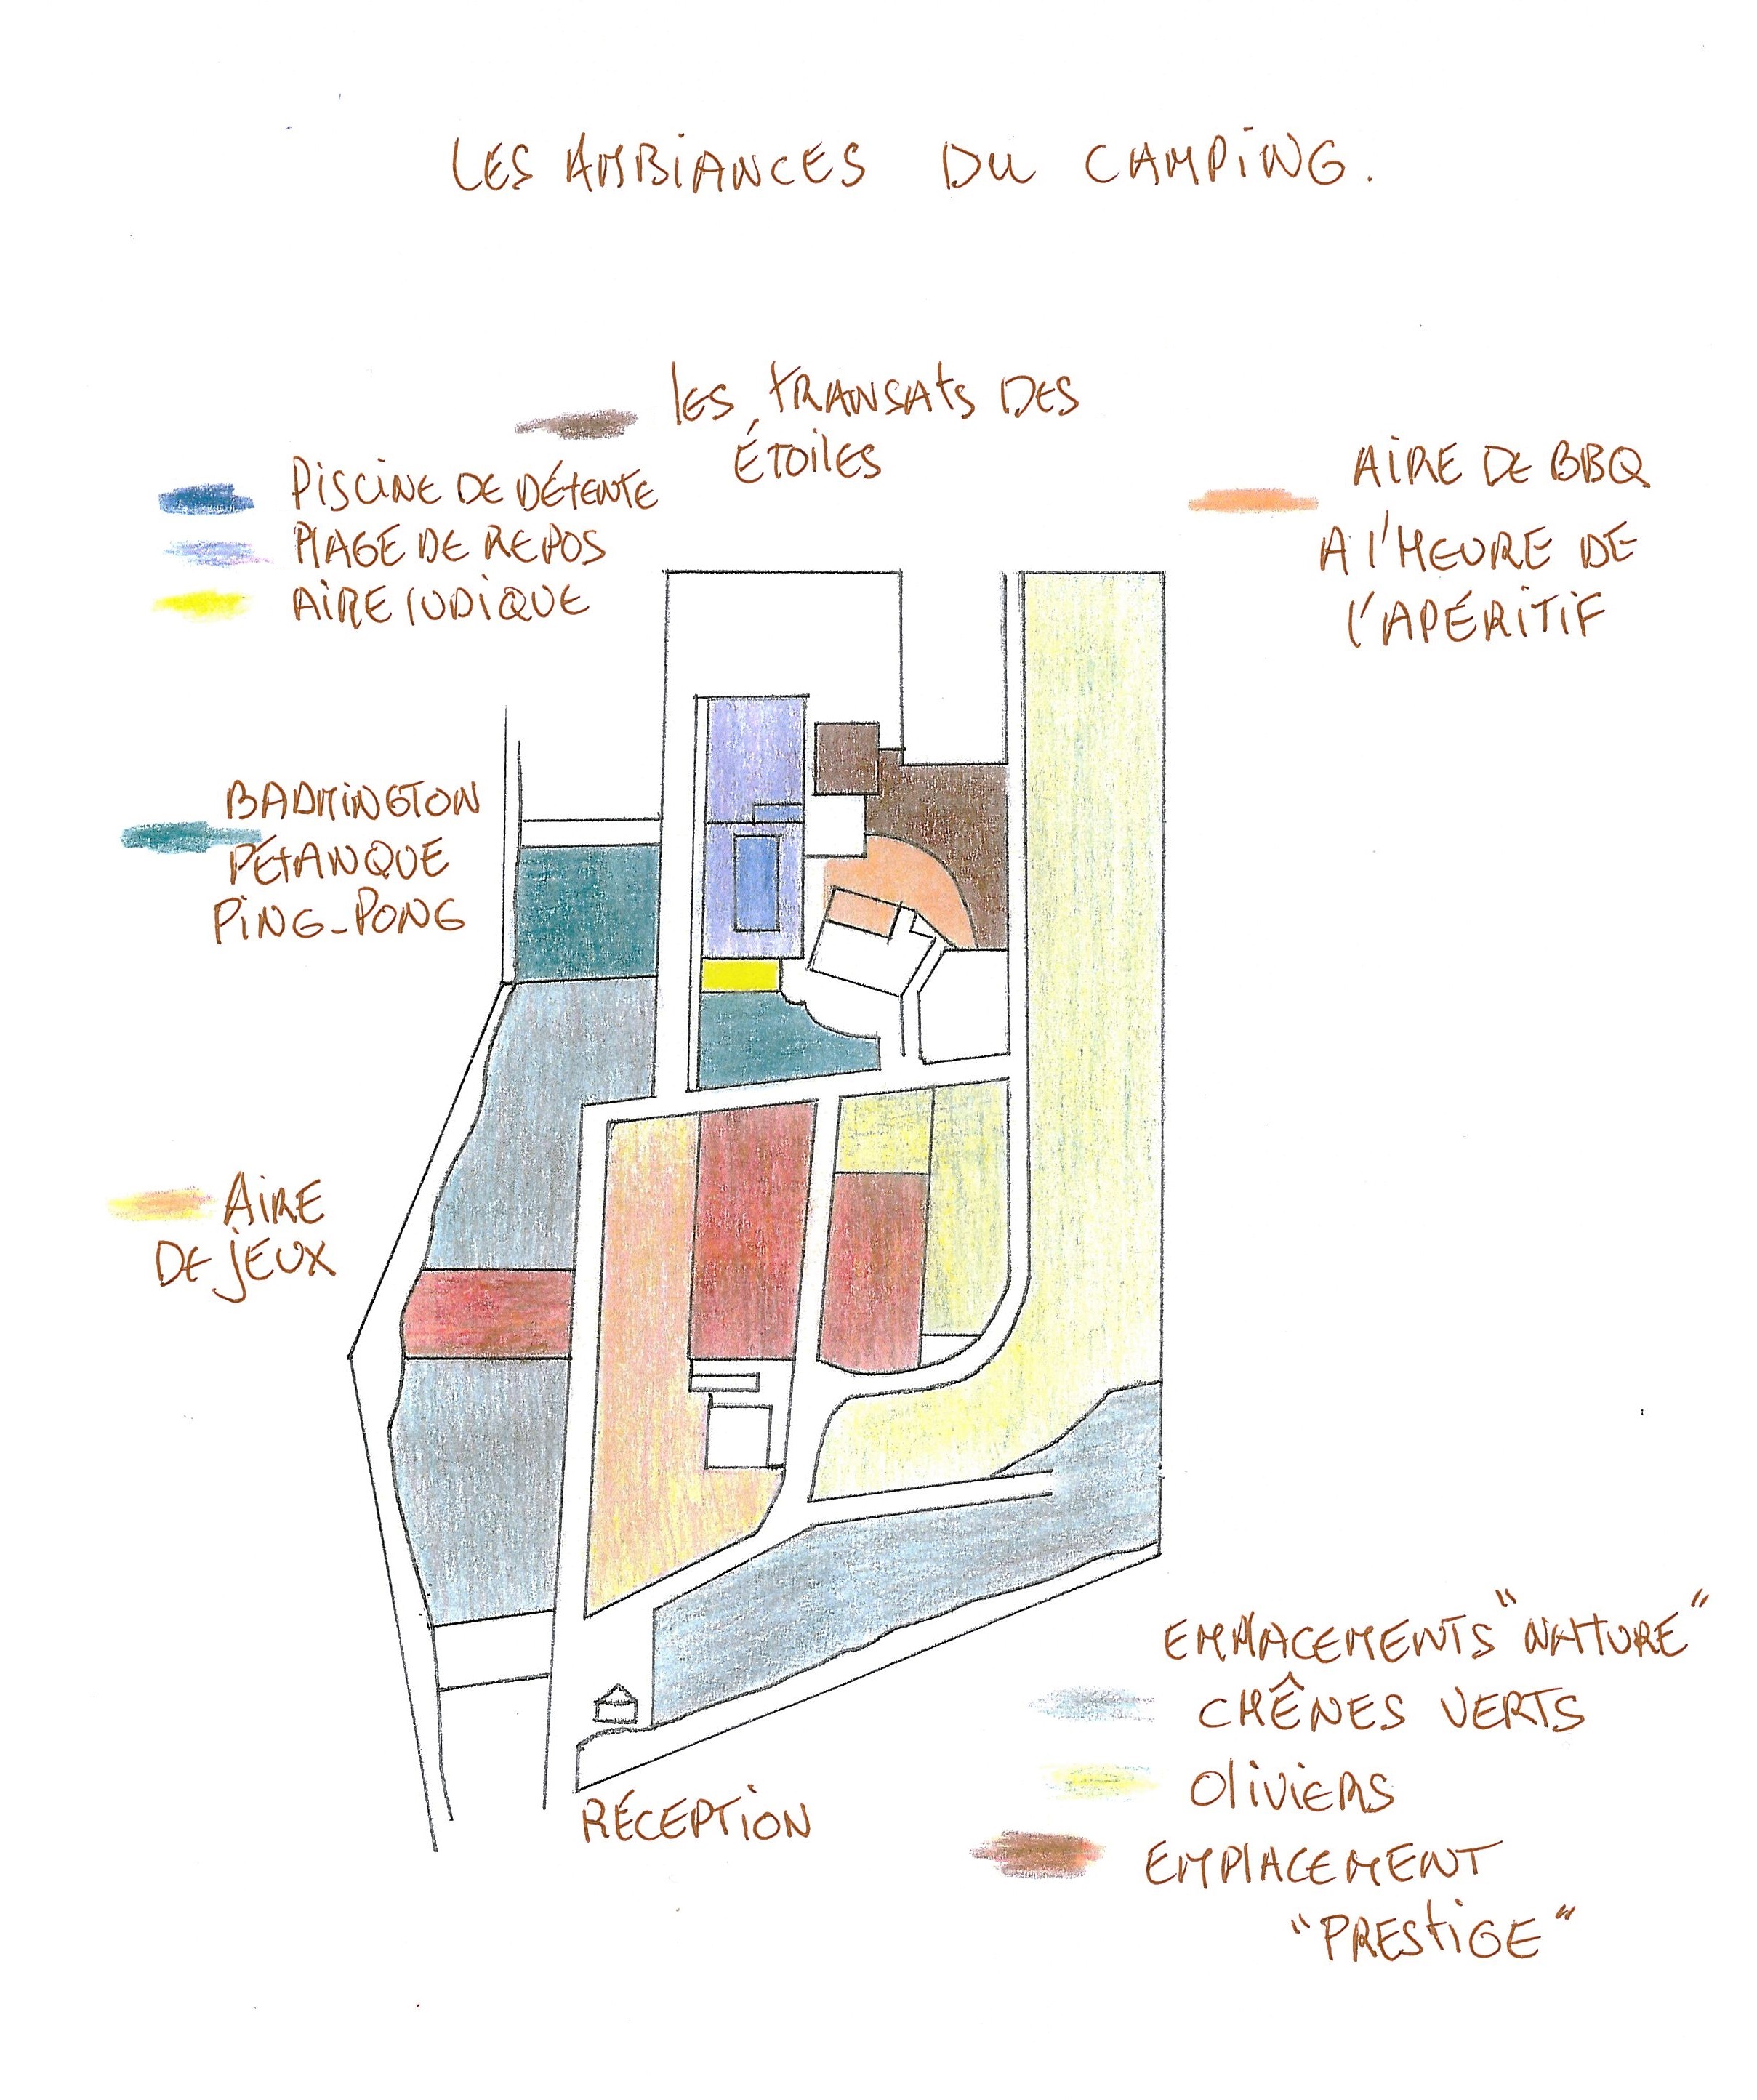 LES AMBIANCES DU CAMPING.
les transats DES
ÉTOILES
PISCINE DE DÉTENTE
PLAGE DE REPOS
AIRE LUDIQUE
AIRE DE BBQ
A l'HEURE DE
l'APÉRITIF
BADMINGTON
PÉTANQUE
PING-PONG
AIRE
DE JEUX
EMPLACEMENTS "NATURE"
CHÊNES VERTS
OLIVIERS
EMPLACEMENT
"PRESTIGE"
RÉCEPTION